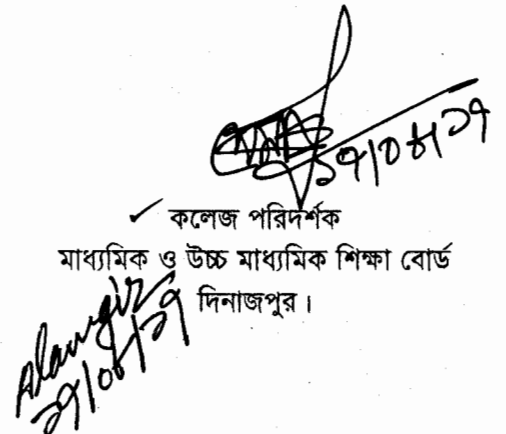 ২৭/০৮/১৭
কলেজ পরিদর্শক
মাধ্যমিক ও উচ্চ মাধ্যমিক শিক্ষা বোর্ড
দিনাজপুর।
Alamgir